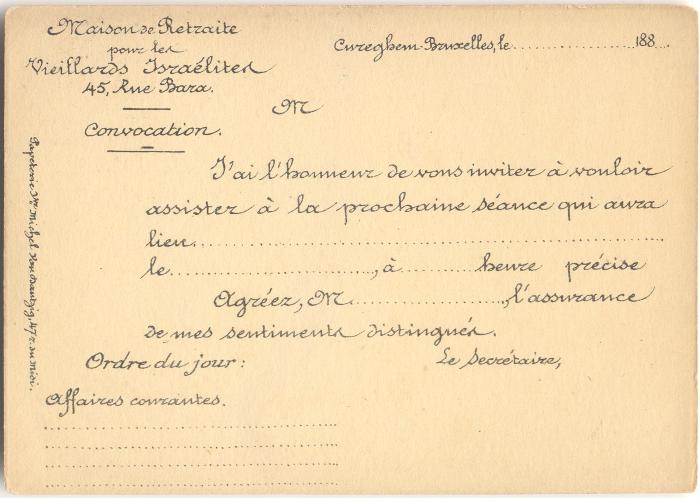 Maison de Retraite
pour les
Vieillards Israélites
45, Rue Bara.
Cureghem-Bruxelles, le ........................ 188...
M
Convocation.
J'ai l'honneur de vous inviter à vouloir
assister à la prochaine séance qui aura
lieu..............................................................
le............................, à ........... heure précise
Agréez, M....................., l'assurance
de mes sentiments distingués.
Ordre du jour:
Le Secrétaire,
Affaires courantes.
Papeterie Ve Michel, 47 r. du Midi.